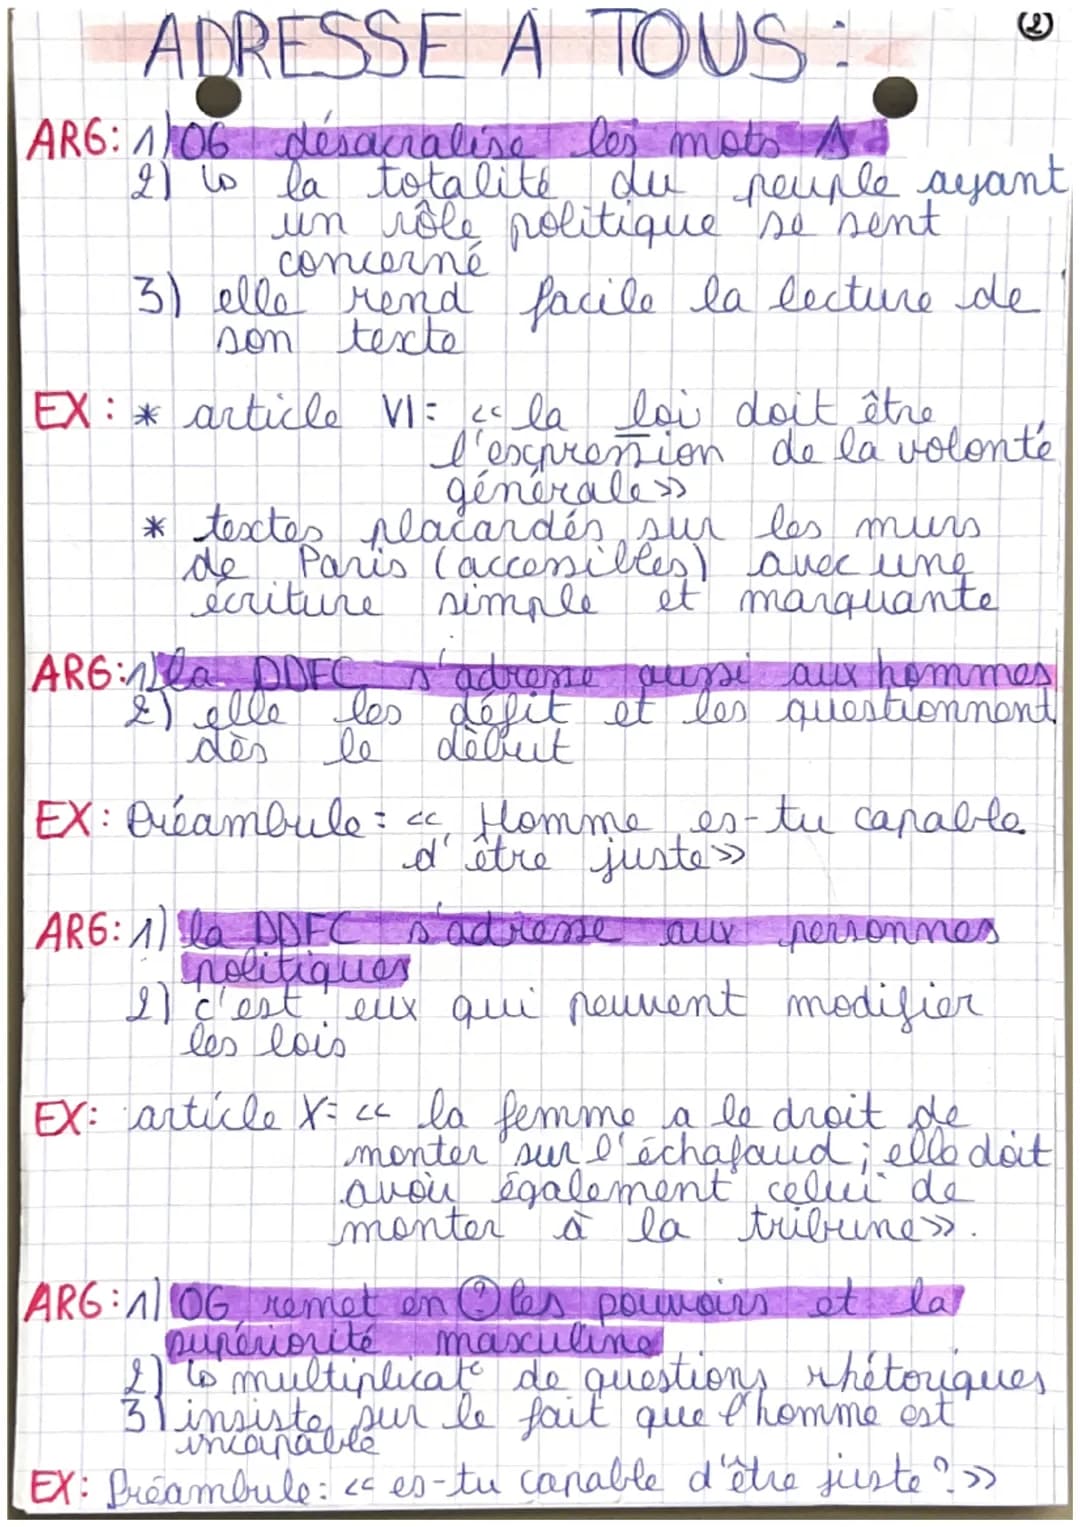 ADRESSE A TOUS :
(2)
ARG: 1) OG désacralise les mots Δ
2) ↳ la totalité du peuple ayant
un rôle politique se sent
concerné
3) elle rend facile la lecture de
son texte
EX: * article VI = << la loi doit être
l'expression de la volonté
générale >>
* textes placardés sur les murs
de Paris (accessibles) avec une
écriture simple et marquante
ARG: 1) la DDFC s'adresse aussi aux hommes
2) elle les défit et les questionnent
dès le début
EX: Préambule = << Homme es-tu capable
d'être juste >>
ARG: 1) la DDFC s'adresse aux personnes
politiques
2) c'est eux qui peuvent modifier
les lois
EX: article X = << la femme a le droit de
monter sur l'échafaud ; elle doit
avoir également celui de
monter à la tribune >>.
ARG: 1) OG remet en ? les pouvoirs et la
supériorité masculine
2) ↳ multiplicat° de questions rhétoriques
3) insiste sur le fait que l'homme est
incapable
EX: Préambule : << es-tu capable d'être juste ? >>